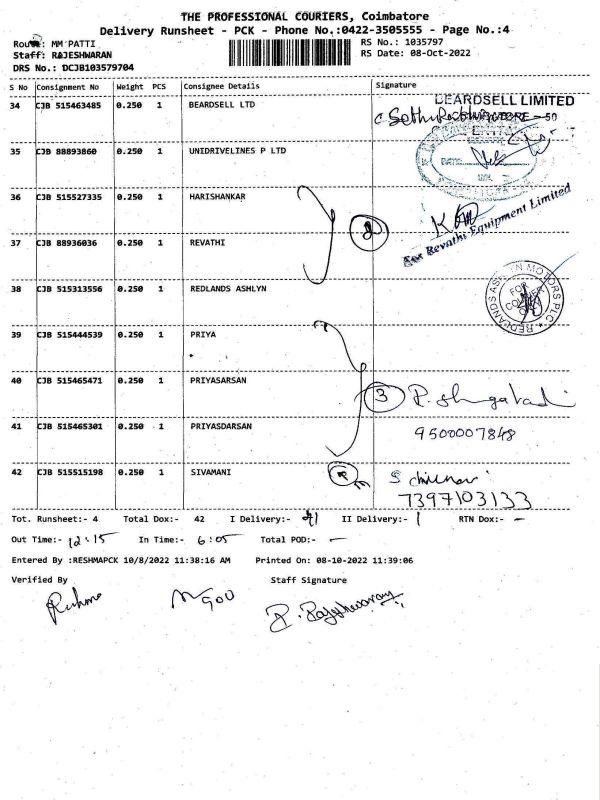 THE PROFESSIONAL COURIERS, Coimbatore
Delivery Runsheet - PCK - Phone No.:0422-3505555 - Page No.:4
Route: MM PATTI
Staff: RAJESHWARAN
DRS No.: DCJB103579704
RS No.: 1035797
RS Date: 08-Oct-2022
S No Consignment No Weight PCS Consignee Details Signature
34 CJB 515463485 0.250 1 BEARDSELL LTD
BEARDSELL LIMITED
35 CJB 88893860 0.250 1 UNIDRIVELINES P LTD
DATE
36 CJB 515527335 0.250 1 HARISHANKAR
For Revathi Equipment Limited
37 CJB 88936036 0.250 1 REVATHI
38 CJB 515313556 0.250 1 REDLANDS ASHLYN
REDLANDS ASHLYN MOTORS PLC
FOR
39 CJB 515444539 0.250 1 PRIYA
40 CJB 515465471 0.250 1 PRIYASARSAN 3
41 CJB 515465301 0.250 1 PRIYASDARSAN 9500007848
42 CJB 515515198 0.250 1 SIVAMANI
7397103133
Tot. Runsheet:- 4 Total Dox:- 42 I Delivery:- 41 II Delivery:- 1 RTN Dox:- -
Out Time:- 12:15 In Time:- 6:05 Total POD:- -
Entered By :RESHMAPCK 10/8/2022 11:38:16 AM Printed On: 08-10-2022 11:39:06
Verified By Staff Signature
R. Rajeshwaran